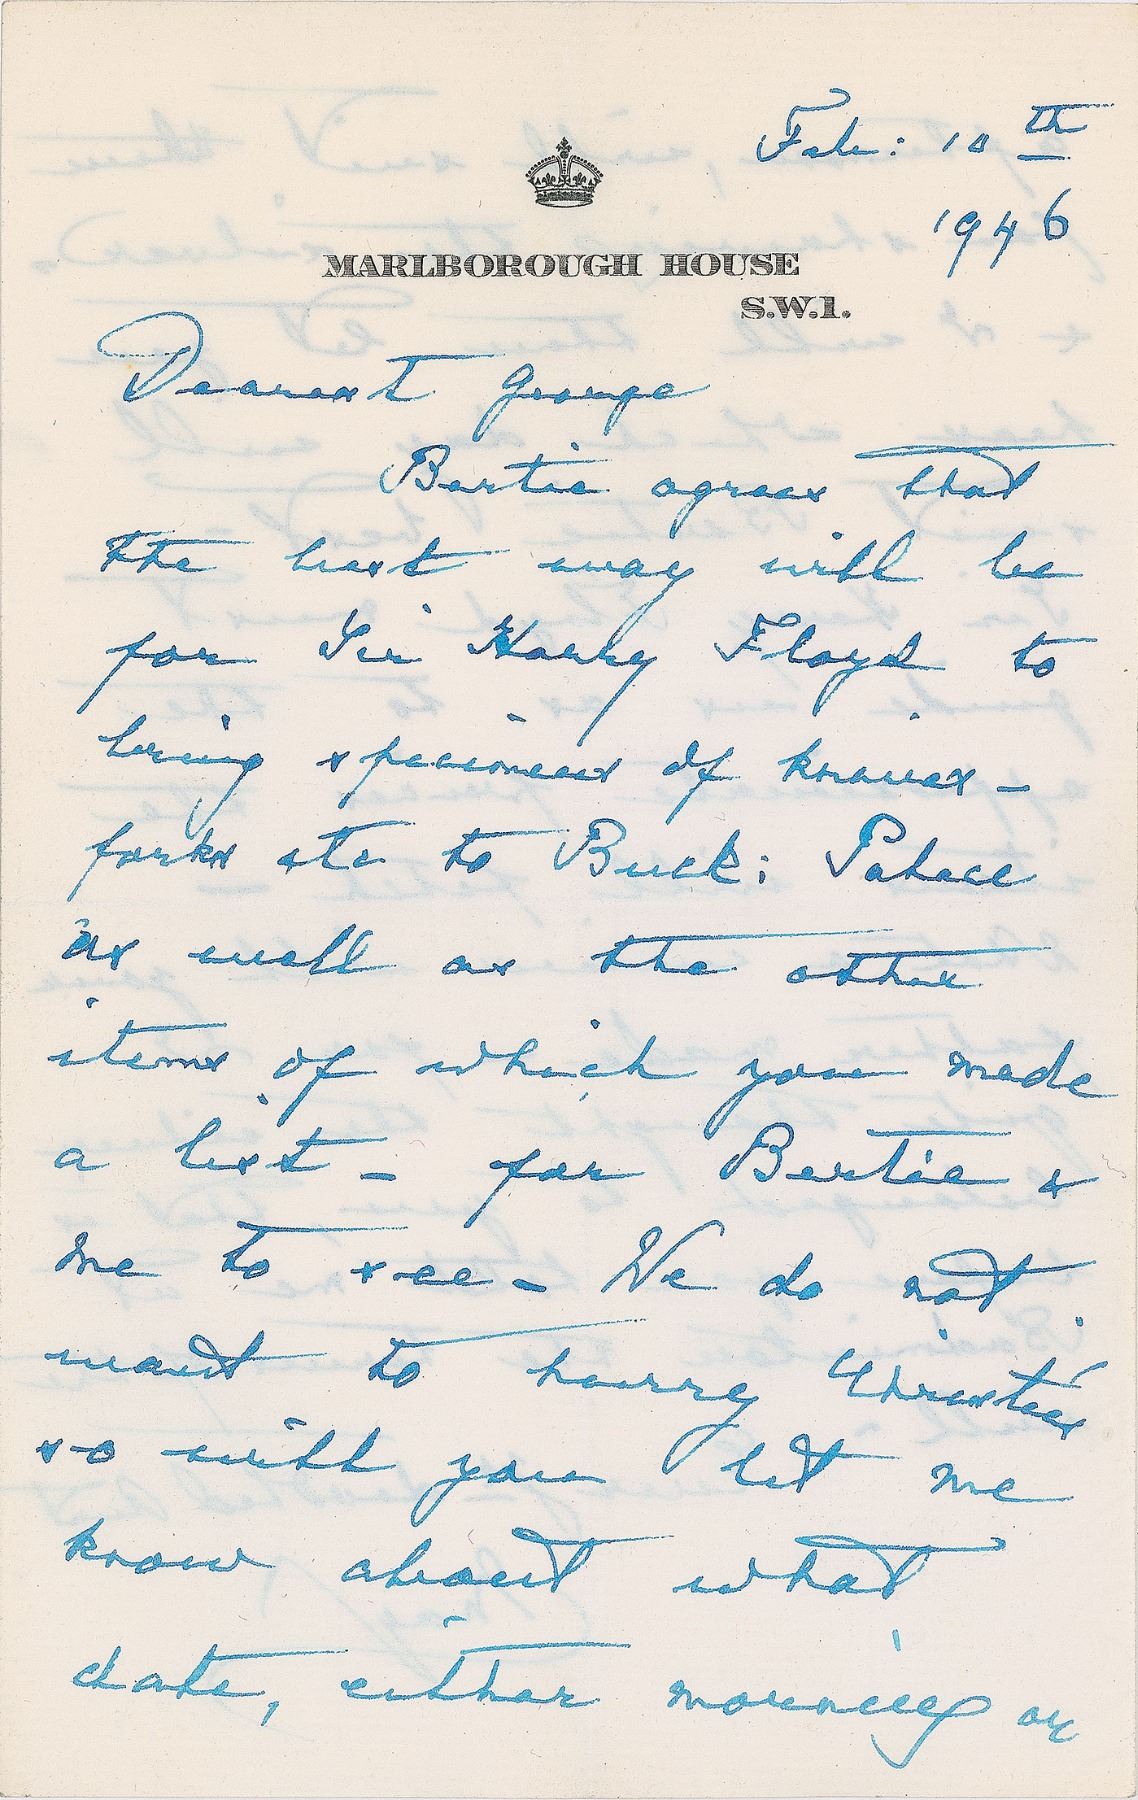 Feb: 10th
1946
MARLBOROUGH HOUSE
S.W.1.
Dearest George
Bertie agrees that
the best way will be
for Sir Harry Floyd to
bring specimens of knives -
forks etc to Buck: Palace
as well as the other
items of which you made
a list - for Bertie &
me to see - We do not
want to hurry Christies
so will you let me
know about what
date, either morning or